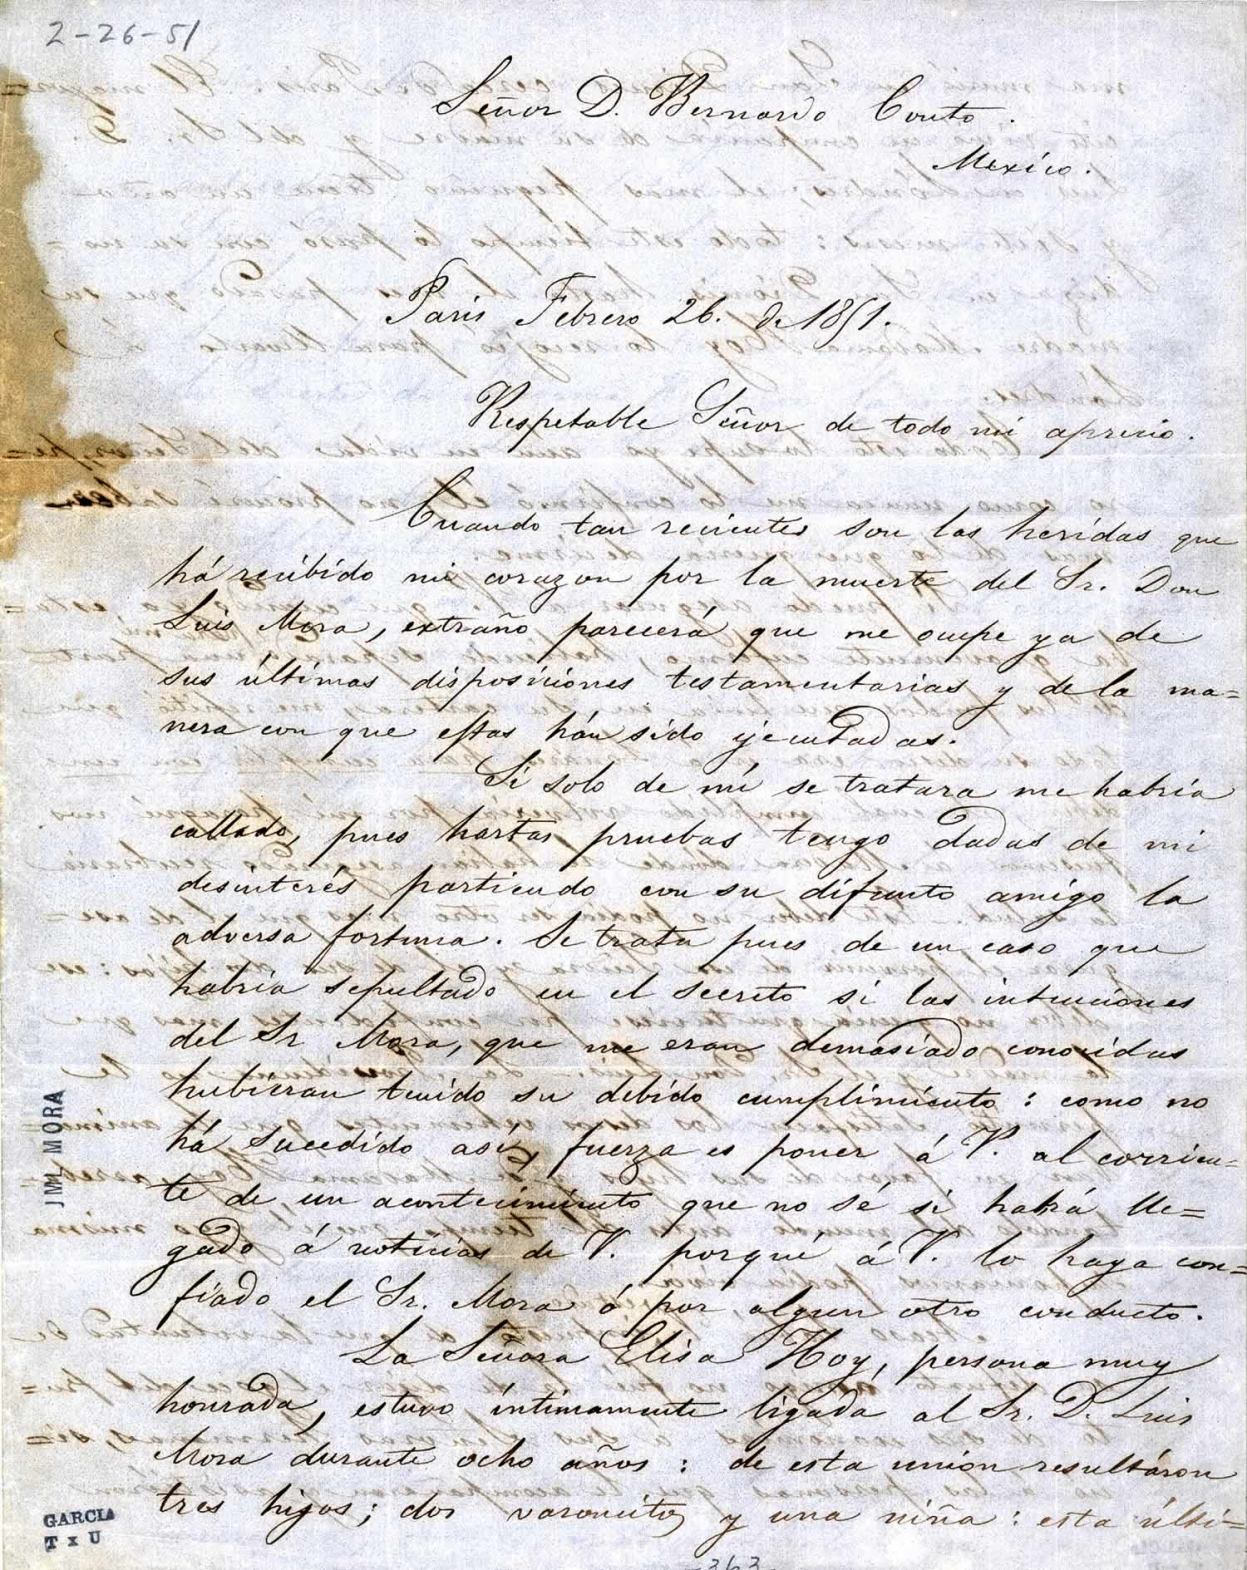 2-26-51
Señor D. Bernardo Couto.
Mexico.
Paris Febrero 26. de 1851.
Respetable Señor de todo mi aprecio.
Cuando tan recientes son las heridas que
há recibido mi corazon por la muerte del Sr. Don
Luis Mora, extraño parecerá que me ocupe ya de
sus últimas disposiciónes testamentarias y de la ma=
nera con que estas hán sido ejecutadas.
Si solo de mí se tratara me habria
callado, pues hartas pruebas tengo dadas de mi
desinterés partiendo con su difunto amigo la
adversa fortuna. Se trata pues de un caso que
habria sepultado en el secreto si las intenciónes
del Sr Mora, que me eran demasiado conocidas
hubieran tenido su debido cumplimiento: como no
há sucedido así, fuerza es poner á V. al corrien=
te de un acontecimiento que no sé si habrá lle=
gado á noticias de V. porqué á V. lo haya con=
fiado el Sr. Mora ó por algun otro conducto.
La Señora Elisa Hoy, persona muy
honrada, estuvo íntimamente ligada al Sr. D. Luis
Mora durante ocho años: de esta unión resultáron
tres hijos; dos varoncitos y una niña: esta últi=
JML MORA
GARCIA
T x U
-363-